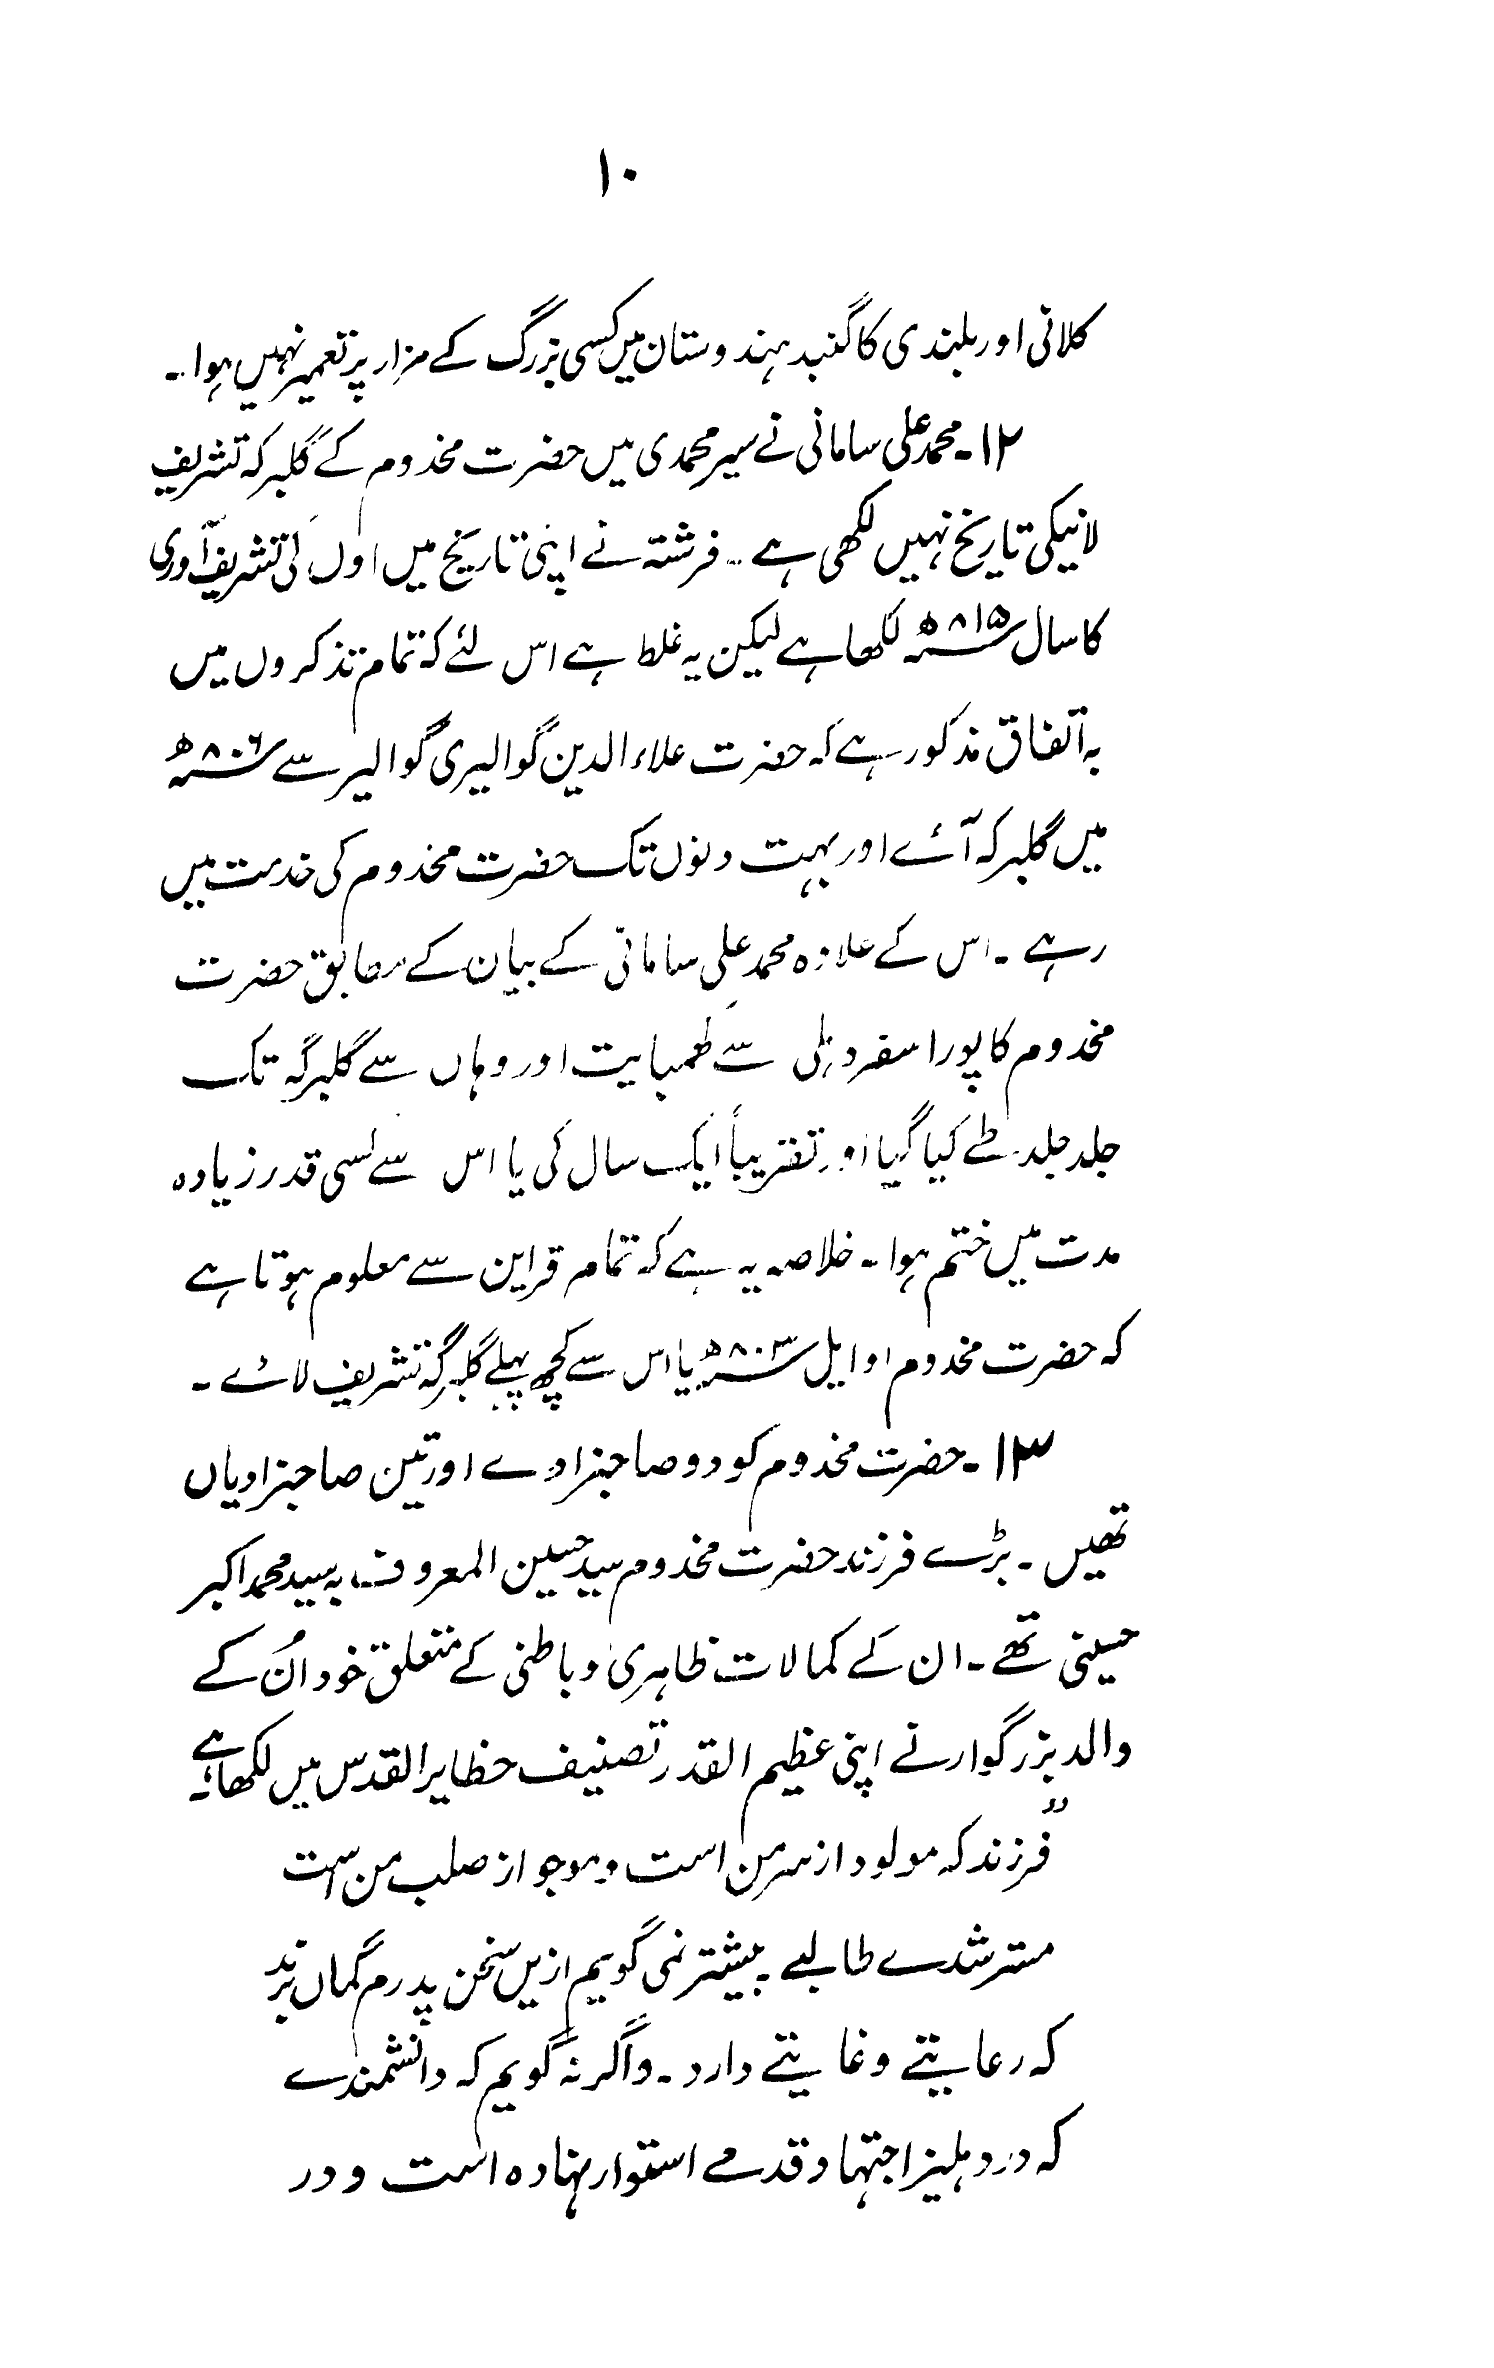 ۱۰
کلانی اور بلندی کا گنبد ہندوستان میں کسی بزرگ کے مزار پر تعمیر نہیں ہوا۔
۱۲۔ محمد علی سامانی نے سیر محمدی میں حضرت مخدوم کے گلبرکہ تشریف
لانیکی تاریخ نہیں لکھی ہے۔ فرشتہ نے اپنی تاریخ میں اول کی تشریف آوری
کا سال ۸۱۵ھ لکھا ہے لیکن یہ غلط ہے اس لئے کہ تمام تذکروں میں
بہ اتفاق مذکور ہے کہ حضرت علاء الدین گوالیری گوالیر سے ۸۰۶ھ
میں گلبرکہ آئے اور بہت دنوں تک حضرت مخدوم کی خدمت میں
رہے۔ اس کے علاوہ محمد علی سامانی کے بیان کے مطابق حضرت
مخدوم کا پورا سفر دہلی سے کھمبایت اور وہاں سے گلبرگہ تک
جلد جلد طے کیا گیا اور تقریباً ایک سال کی یا اس سے کسی قدر زیادہ
مدت میں ختم ہوا۔ خلاصہ یہ ہے کہ تمام قراین سے معلوم ہوتا ہے
کہ حضرت مخدوم اوایل ۸۰۳ھ یا اس سے کچھ پہلے گلبرگہ تشریف لائے۔
۱۳۔ حضرت مخدوم کو دو صاحبزادے اور تین صاحبزادیاں
تھیں۔ بڑے فرزند حضرت مخدوم سید حسین المعروف بہ سید محمد اکبر
حسینی تھے۔ ان کے کمالات ظاہری و باطنی کے متعلق خود اُن کے
والد بزرگوار نے اپنی عظیم القدر تصنیف حظایر القدس میں لکھا ہے۔
"فرزند کہ مولود از سر من است و موجو از صلب من است
مسترشدے طالبے۔ بیشتر نمی گویم ازیں سخن پدرم گماں برند
کہ رعایتے و غایتے دارد۔ و اگر نہ گویم کہ دانشمندے
کہ در دہلیز اجتہاد قدمے استوار نہادہ است و در